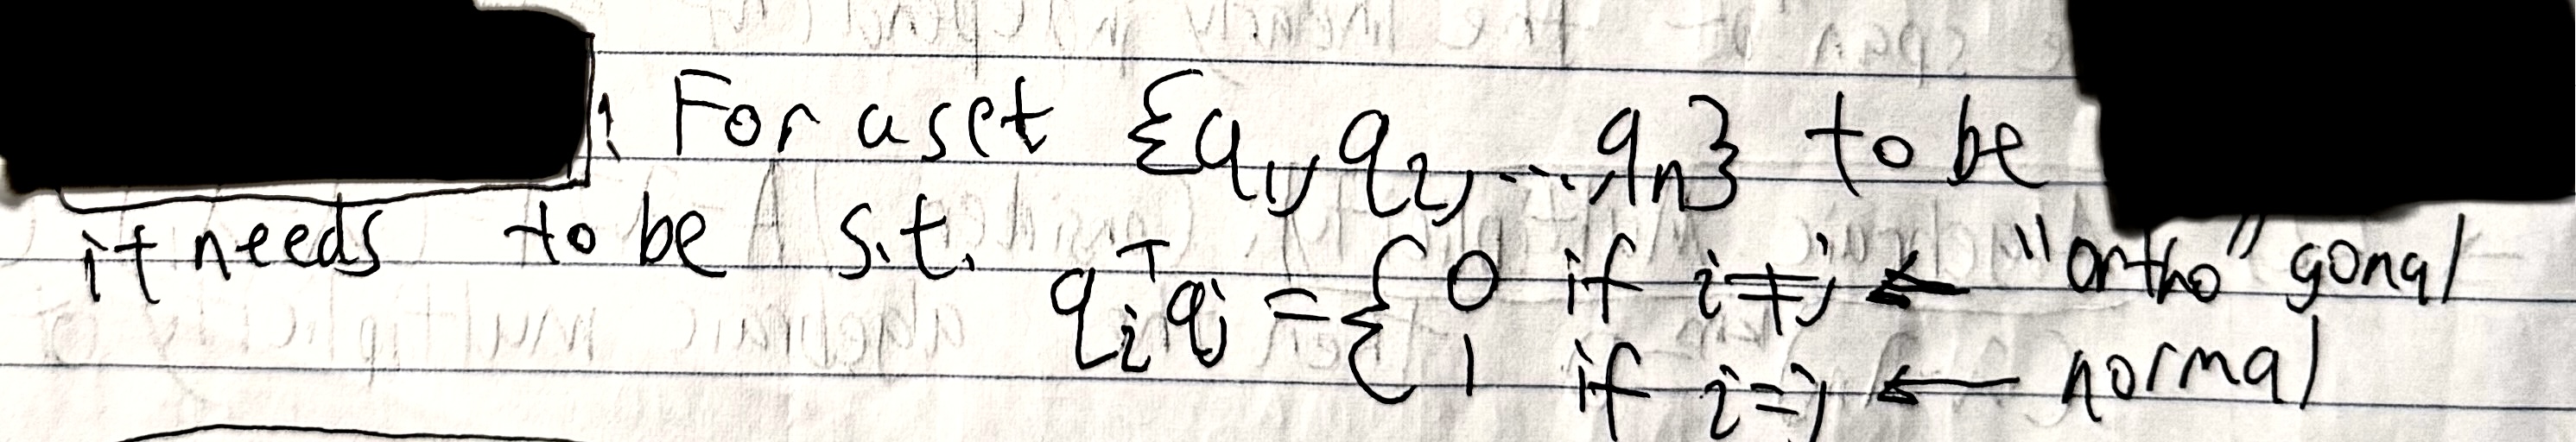 : For a set {q₁, q₂, ..., qₙ} to be
it needs to be s.t. qᵢᵀqⱼ = { 0 if i≠j ← "ortho" gonal
1 if i=j ← normal